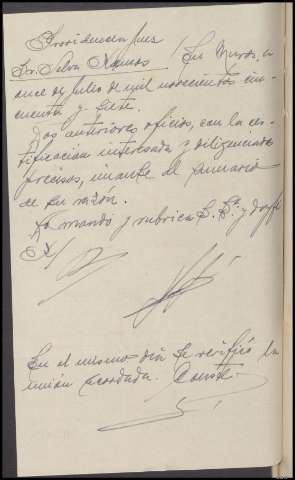 Providencia Juez
Sr. Selva Ramos / En Muros, a
once de Julio de mil novecientos cin-
cuenta y siete.
Los anteriores oficios, con la cer-
tificación interesada y diligenciado
precisos, únanse al sumario
de su razón.
Lo mandó y rubrica S. Sª. y doy fé
En el mismo día se verificó la
unión acordada. Consté